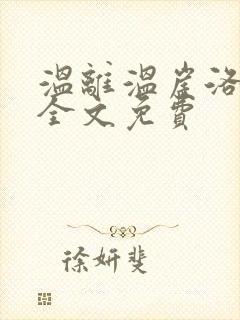 溫離溫崖洛
全文免費
徐妍斐